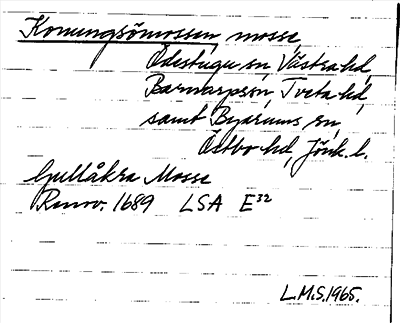 Konungsömossen, mosse,
Ödestugu sn, Västra hd,
Barnarps sn, Tveta hd,
samt Byarums sn,
Östbo hd, Jönk. l.
Gullåkra Mosse
Ranov. 1689 LSA E32
L.M.S.1965.